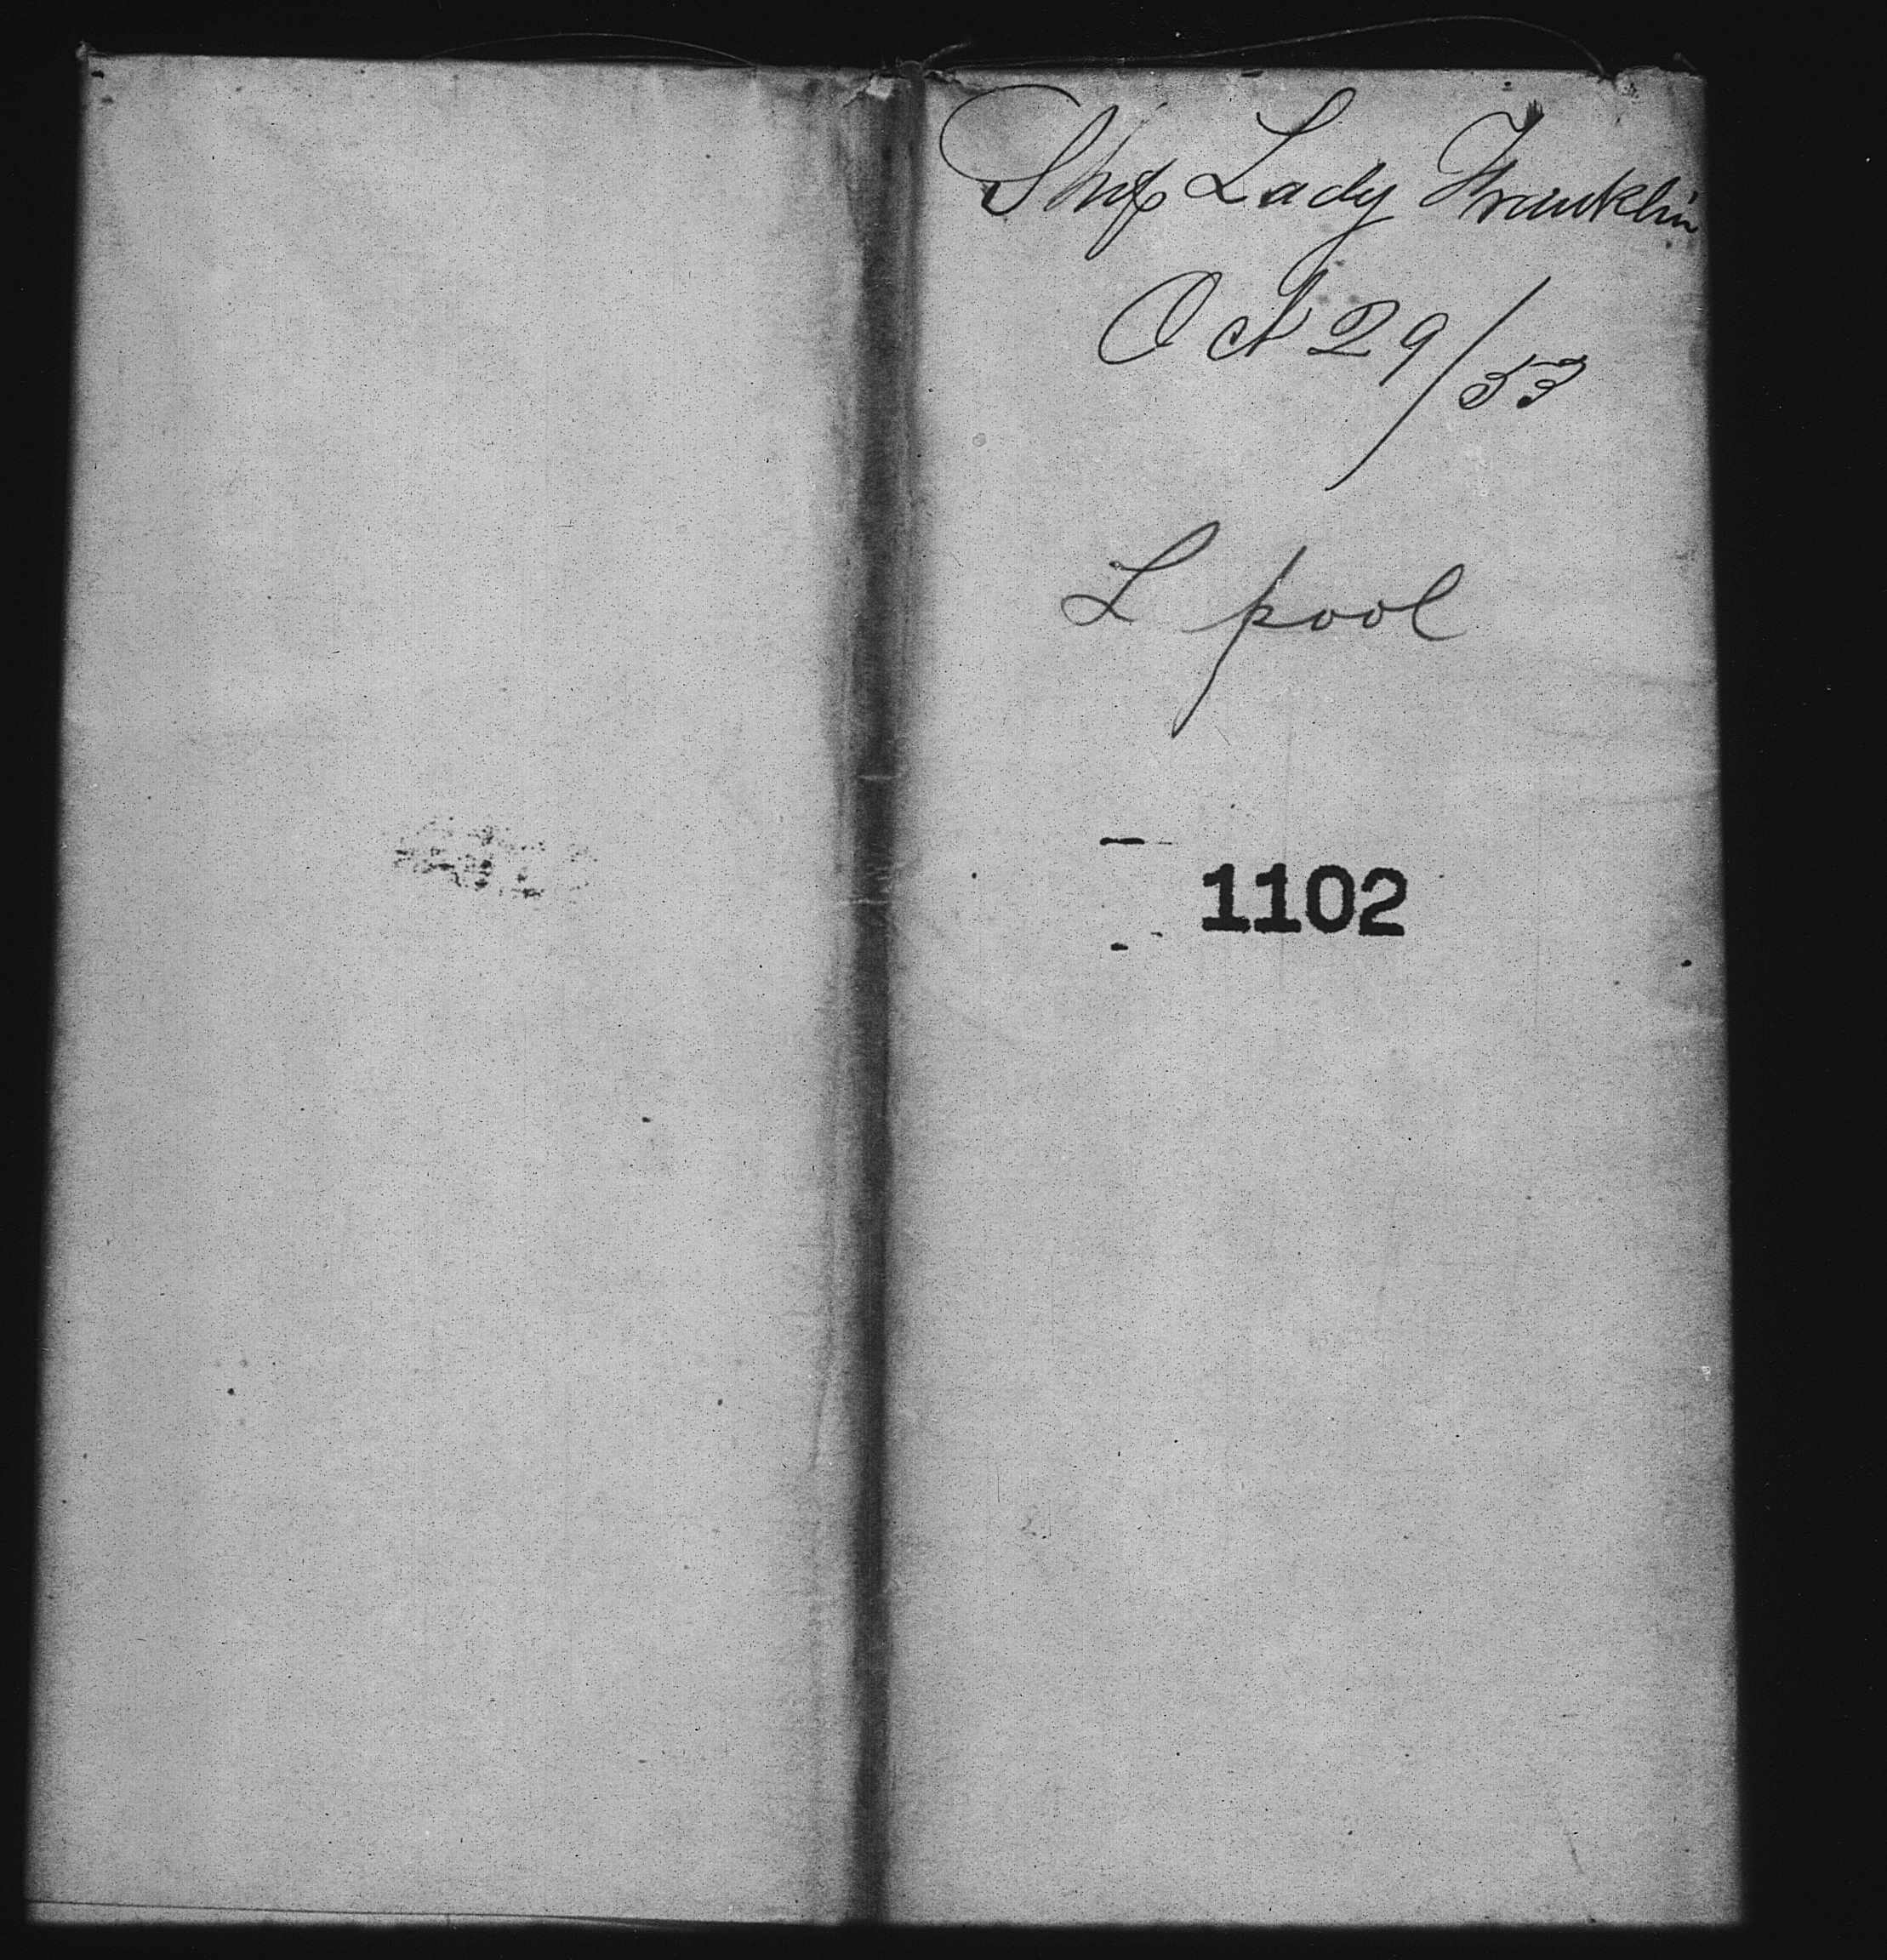 Ship Lady Franklin
Oct 29/53
L pool
1102